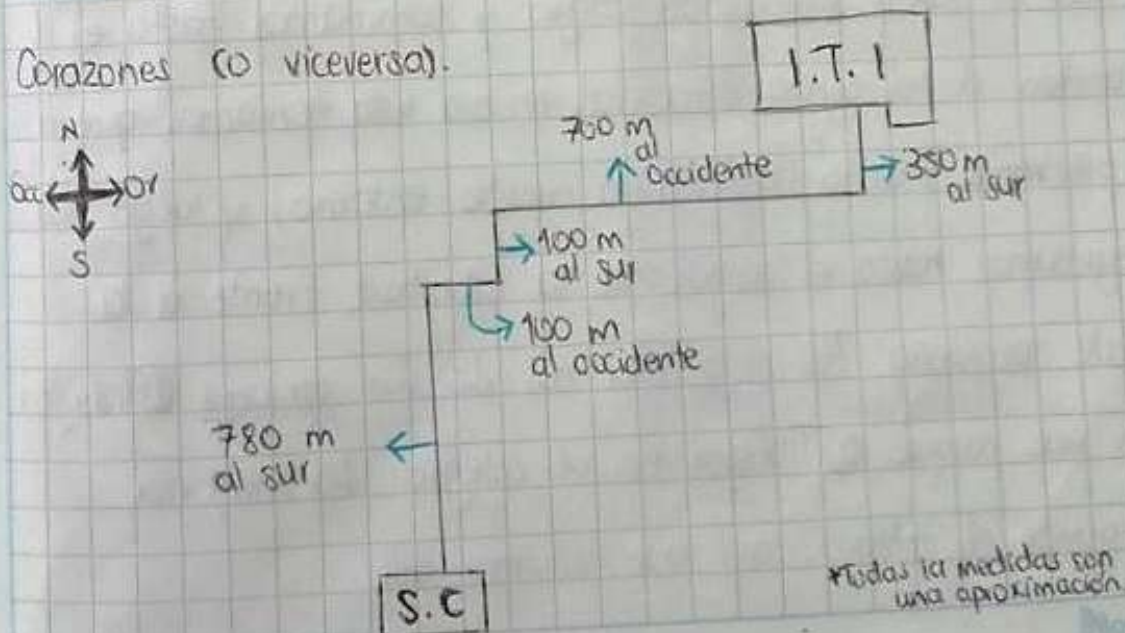 Corazones (o viceversa).
I.T.I
N
Occ
Or
S
700 m
al
occidente
350 m
al sur
100 m
al sur
100 m
al occidente
780 m
al sur
S.C
*Todas la medidas son
una aproximación